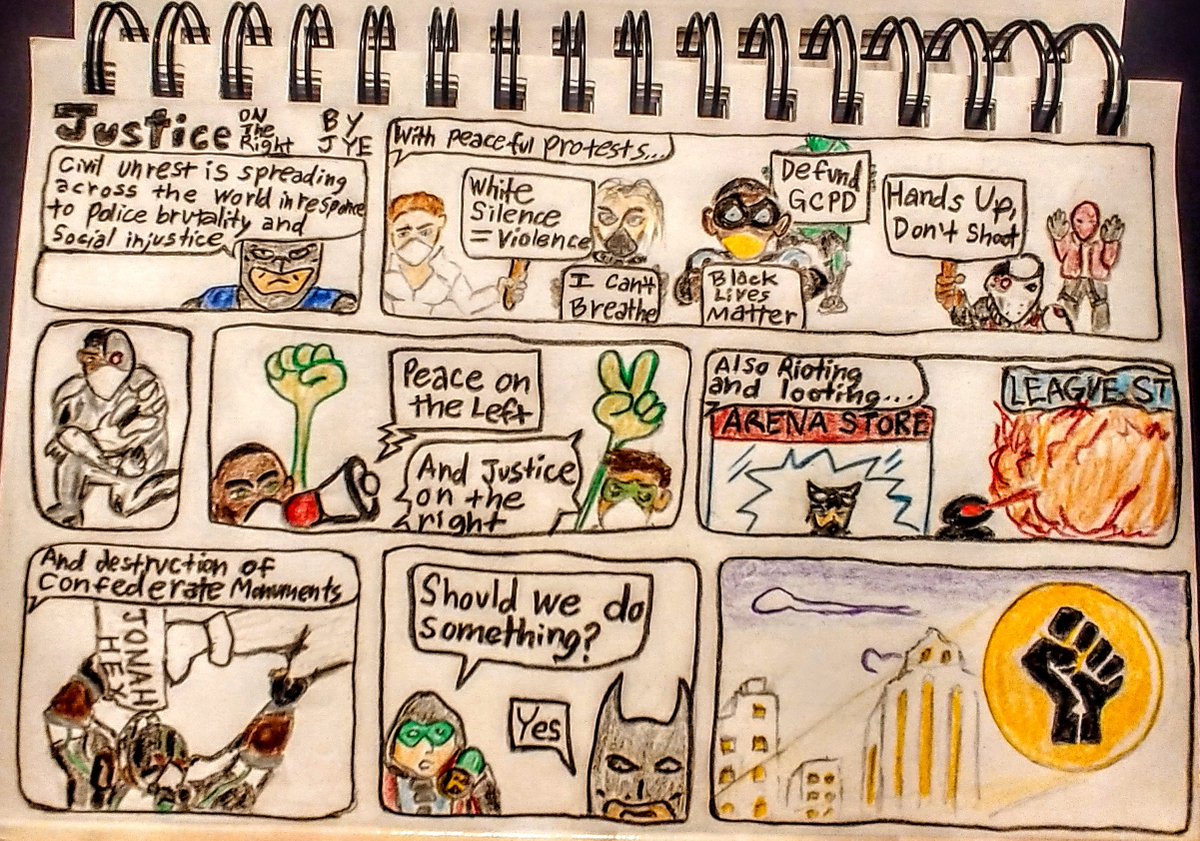 Justice
ON
The
Right
BY
JYE
Civil unrest is spreading
across the world in response
to police brutality and
Social injustice
With peaceful protests...
White
Silence
= Violence
I Can't
Breathe
Black
Lives
Matter
Defund
GCPD
Hands Up,
Don't Shoot
Peace on
the Left
And Justice
on the
right
Also Rioting
and looting...
ARENA STORE
LEAGUE ST
And destruction of
Confederate Monuments
JONAH
HEX
Should we do
something?
Yes